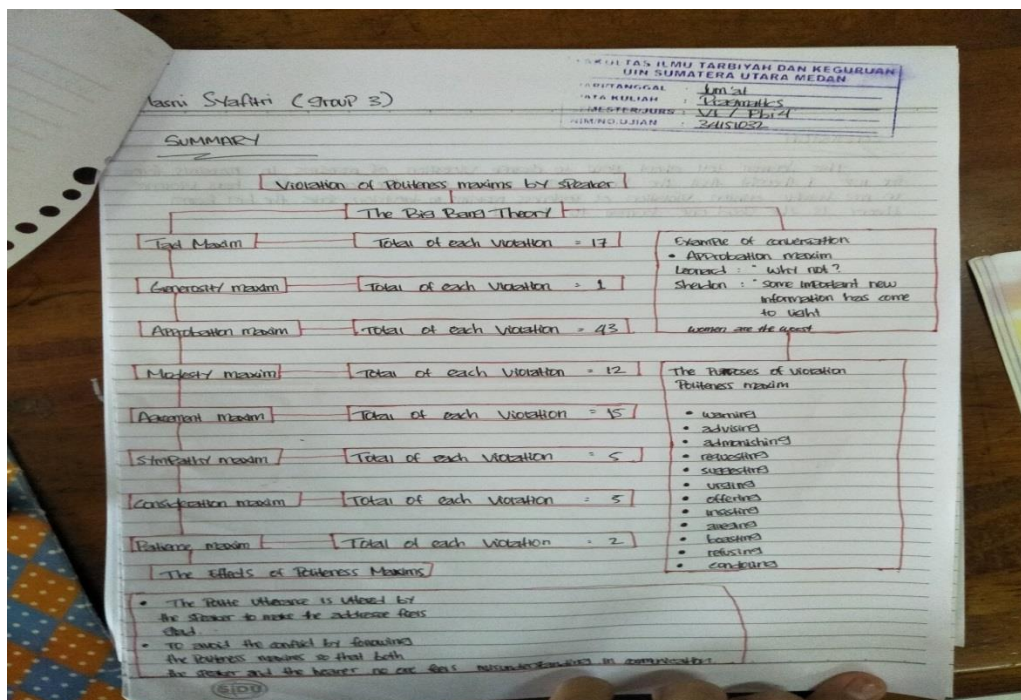 Masni Syafitri (Group 3)
FAKULTAS ILMU TARBIYAH DAN KEGURUAN
UIN SUMATERA UTARA MEDAN
HARI/TANGGAL : Jum'at
MATA KULIAH : Pragmatics
SEMESTER/JURS : VI / PBI 4
NIM/NO.UJIAN : 34151032
SUMMARY
Violation of Politeness maxims by speaker
The Big Bang Theory
Tact Maxim Total of each Violation = 17
Generosity maxim Total of each Violation = 1
Approbation maxim Total of each Violation = 43
Modesty maxim Total of each Violation = 12
Agreement maxim Total of each Violation = 15
Sympathy maxim Total of each Violation = 5
Consideration maxim Total of each Violation = 5
Patience maxim Total of each Violation = 2
Example of conversation
• Approbation maxim
Leonard : " Why not ?
Sheldon : " Some important new
information has come
to light
women are the worst
The Purposes of violation
Politeness maxim
• warning
• advising
• admonishing
• requesting
• suggesting
• urging
• offering
• insisting
• boasting
• refusing
The Effects of Politeness Maxims
• The Polite Utterance is uttered by
the speaker to make the addresse feels
glad.
• To avoid the conflict by following
the Politeness maxims so that both
the speaker and the hearer no one feels misunderstanding in communication
SIDU